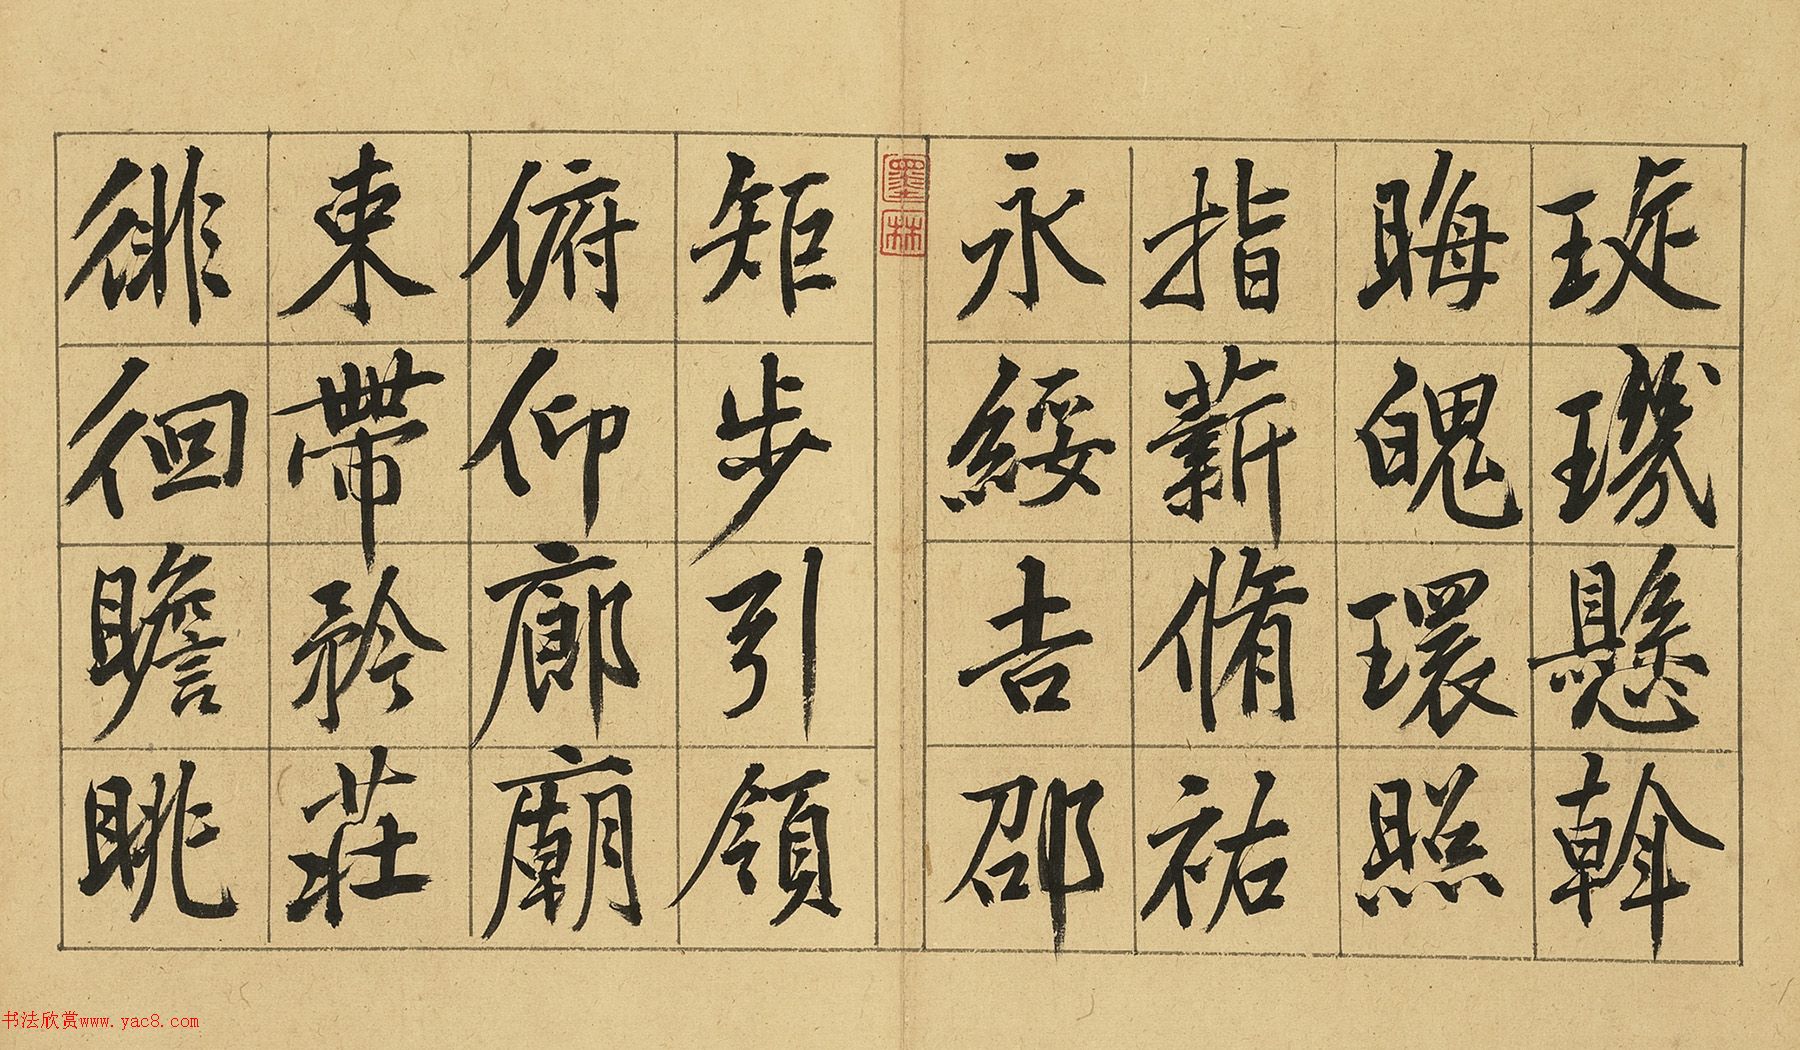 琁璣懸斡
晦魄環照
指薪脩祐
永綏吉邵
矩步引領
俯仰廊廟
束帶矜莊
徘徊瞻眺
墨林
书法欣赏www.yac8.com